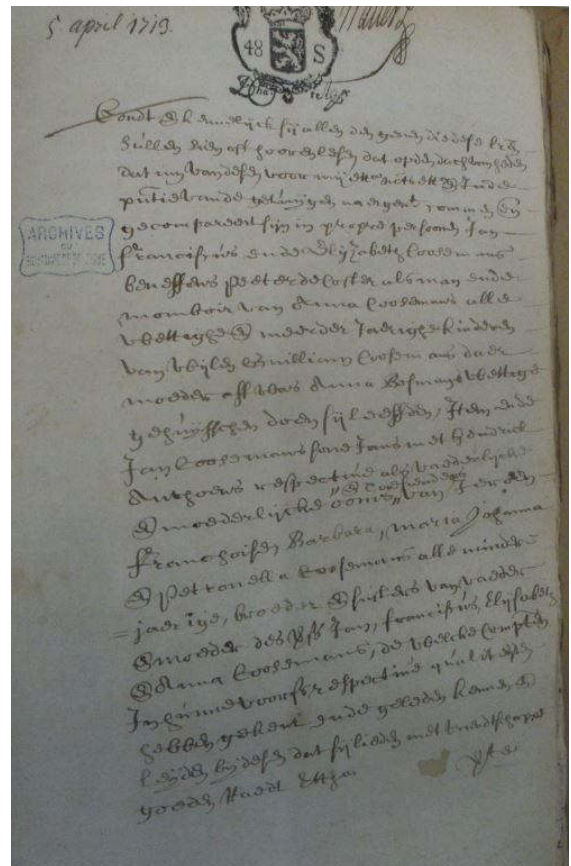 5 april 1713.
48 S
ARCHIVES
DU
Condt & kennelijck sij allen den genen die dese
sullen sien oft hooren lesen dat op den dach van heden
dat van desen voor mij ettª
van de getuijgen naergen^t commen en
gecompareert sijn in propre persoonen Jan
Francissus ende Elijzabeth Coosemans
beneffens Peeter de Coster als man ende
momboir van Anna Coosemans alle
wettighe & meerder Jaerighe kinderen
van wijlen Guilliam Coosemans daer
moeder aff was Anna Bosmans wettige
gehuijsschen doen sij leeffden, Item ende
Jan Coosemans sone Jans met Hendrick
Anthoens respective als vaederlijcke
& moederlijcke ooms van Jereden
Franchoisen Barbara, Maria Johanna
& Petronella Coosemans alle minder
=jaerige, broeder & susters van vaeder
& moeder des Jan, Francissus, Elijsabeth
& Anna Coosemans, de welcke
In hunne voors respective qualiteijten
hebben gekent ende geleden kennen &
leijden bij desen dat sij lieden met vrindtschappe
goeden Raedt